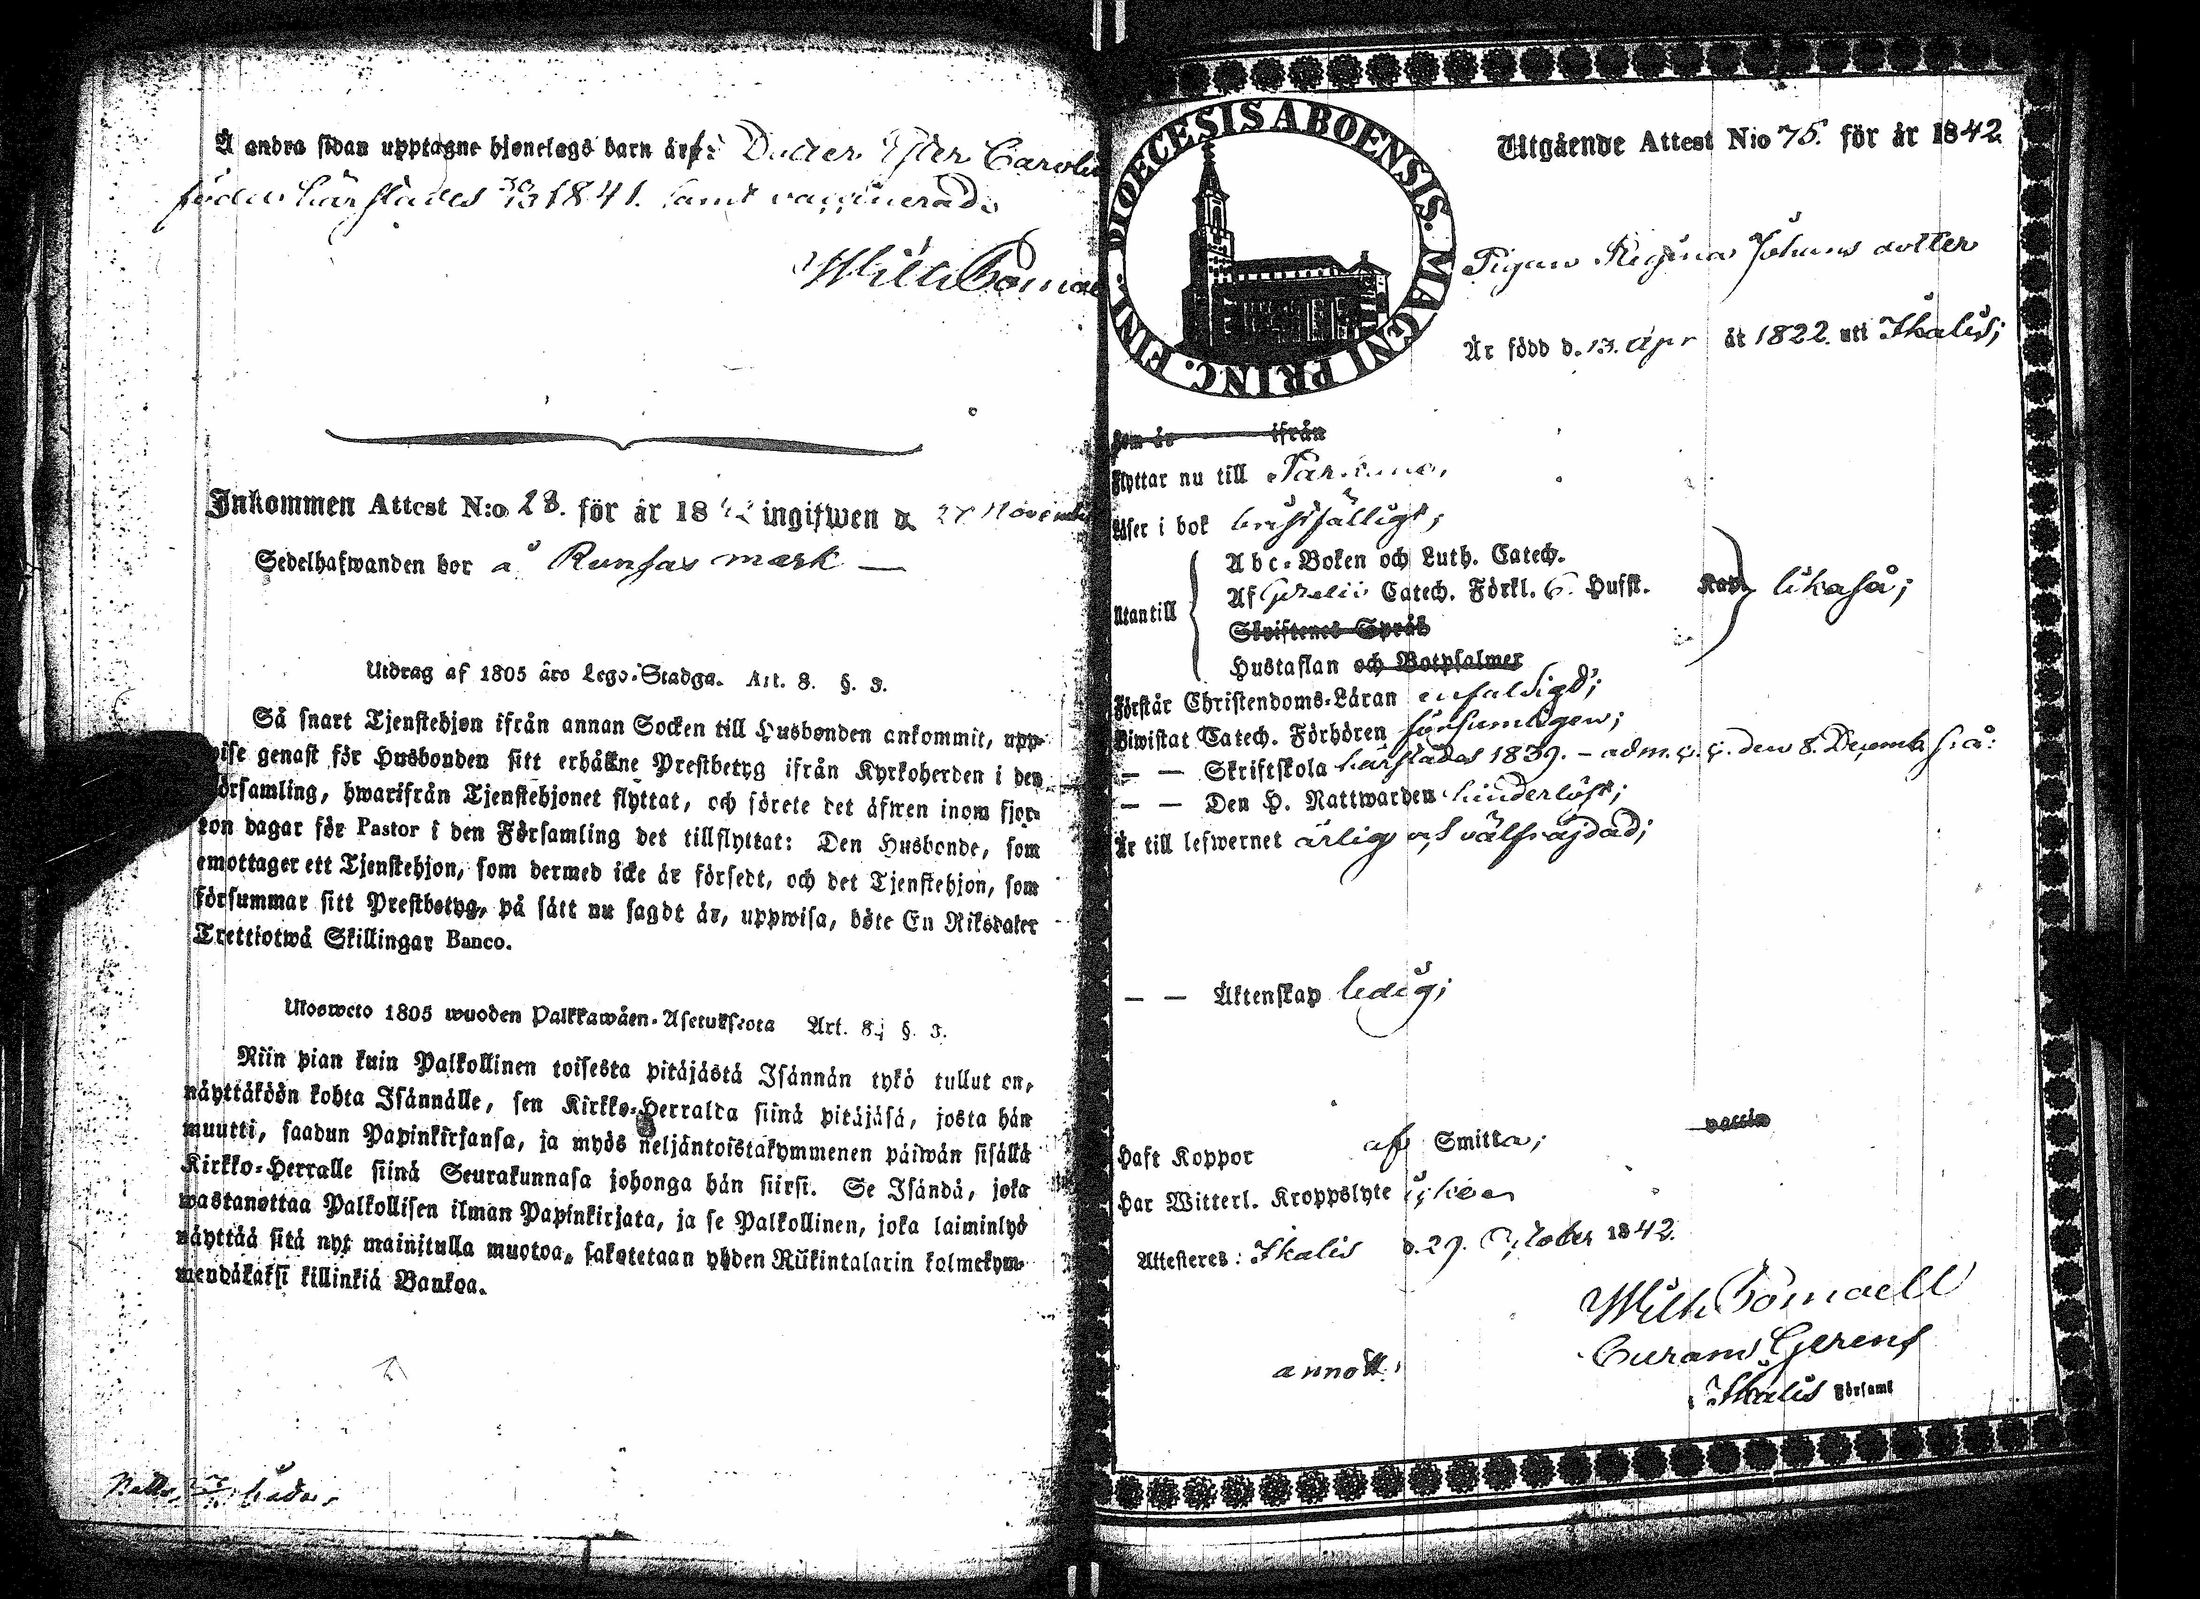 Å andra sidan upptagne hjonelags barn är: Dotter Ester Carolin
född härstädes 30/3 1841. samt vaccinerad.
Inkommen Attest N:o 28. för år 1842 ingifwen d. 27 Novemb
Sedelhafwanden bor å Runsas mark —
Utdrag af 1805 års Lego-Stadga. Art. 8. §. 3.
Så snart Tjenstehjon ifrån annan Socken till Husbonden ankommit, upp-
wise genast för Husbonden sitt erhållne Prestbetyg ifrån Kyrkoherden i den
Församling, hwarifrån Tjenstehjonet flyttat, och förete det äfwen inom fjor-
ton dagar för Pastor i den Församling det tillflyttat: Den Husbonde, som
emottager ett Tjenstehjon, som dermed icke är försedt, och det Tjenstehjon, som
försummar sitt Prestbetyg, på sätt nu sagdt är, uppwisa, böte En Riksdaler
Trettiotwå Skillingar Banco.
Ulosweto 1805 wuoden Palkkawäen-Asetuksesta Art. 8. §. 3.
Niin pian kuin Palkollinen toisesta pitäjästä Isännän tykö tullut on,
näyttäköön kohta Isännälle, sen Kirkko-Herralta siinä pitäjäsä, josta hän
muutti, saadun Papinkirjansa, ja myös neljäntoistakymmenen päiwän sisällä
Kirkko-Herralle siinä Seurakunnasa johonga hän siirsi. Se Isändä, joka
wastanottaa Palkollisen ilman Papinkirjata, ja se Palkollinen, joka laiminlyö
näyttää sitä nyt mainitulla muotoa, sakotetaan yhden Riikintalarin kolmekym-
mendäkaksi killinkiä Bankoa.
DIOECESIS ABOENSIS. MAGNI PRINC. FINL.
Utgående Attest N:o 75. för år 1842
Pigan Regina Johans dotter
Är född d. 13. Apr år 1822. uti Ikalis;
Som är ifrån
Flyttar nu till
Läser i bok bristfälligt;
Utantill
Abc-Boken och Luth. Catech.
Af Catech. Förkl. 6. Hufst. Kap. likaså;
Skriftenes Språk
Hustaflan och Botpsalmer
Förstår Christendoms-Läran enfaldigt;
Biwistat Catech. Förhören försumligen;
— — Skriftskola härstädes 1839. – adm. den 8. Decemb s. å:
— — Den H. Nattwarden hinderlöst;
Är till lefwernet ärlig och välfräjdad;
— — Äktenskap ledig;
Haft Koppor af Smitta; vaccin
Har Witterl. Kroppslyte icke
Attesteras: Ikalis d. 29. October 1842.
Wilh. Bomaell
Curam Gerens
Ikalis Församl